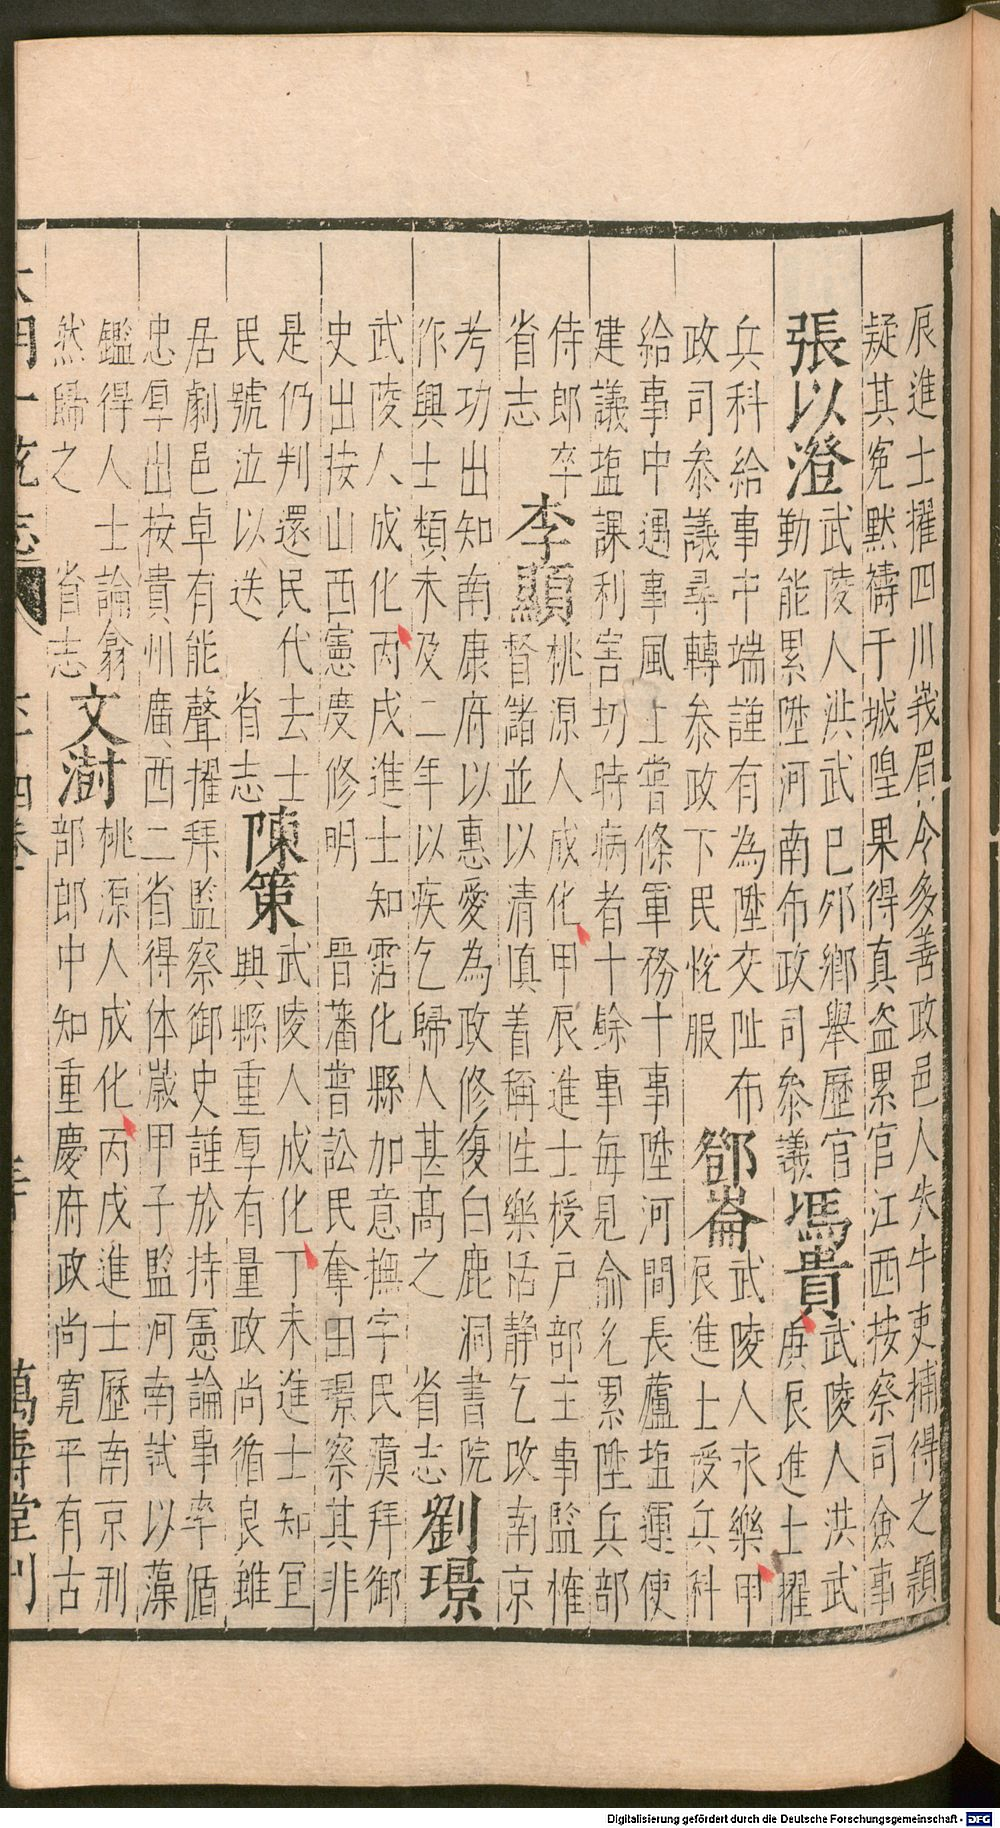 辰進士擢四川峩眉令多善政邑人失牛吏捕得之顥
疑其寃默禱于城隍果得真盗累官江西按察司僉事
張以澄
武陵人洪武巳夘鄉舉歷官
勤能累陞河南布政司叅議
馮貴
武陵人洪武
庚辰進士擢
兵科給事中端謹有為陞交阯布
政司叅議尋轉叅政下民恱服
鄧崙
武陵人永樂甲
辰進士授兵科
給事中遇事風上嘗條軍務十事陞河間長蘆塩運使
建議塩課利害切時病者十餘事毎見俞允累陞兵部
侍郎卒
省志
李顯
桃源人成化甲辰進士授户部主事監惟
督諸並以清慎着稱性樂恬静乞改南京
考功出知南康府以惠愛為政修復白鹿洞書院
作興士類未及二年以疾乞歸人甚髙之 省志
劉璟
武陵人成化丙戌進士知霑化縣加意撫字民瘼拜御
史出按山西憲度修明 晉藩嘗訟民奪田璟察其非
是仍判還民代去士
民號泣以送 省志
陳策
武陵人成化丁未進士知冝
興縣重厚有量政尚循良雖
居劇邑卓有能聲擢拜監察御史謹於持憲論事率循
忠厚出按貴州廣西二省得体嵗甲子監河南試以藻
鑑得人士論翕
然歸之 省志
文澍
桃源人成化丙戌進士歷南京刑
部郎中知重慶府政尚寛平有古
大明一統志 六十四卷 萬壽堂刊
Digitalisierung gefördert durch die Deutsche Forschungsgemeinschaft - DFG